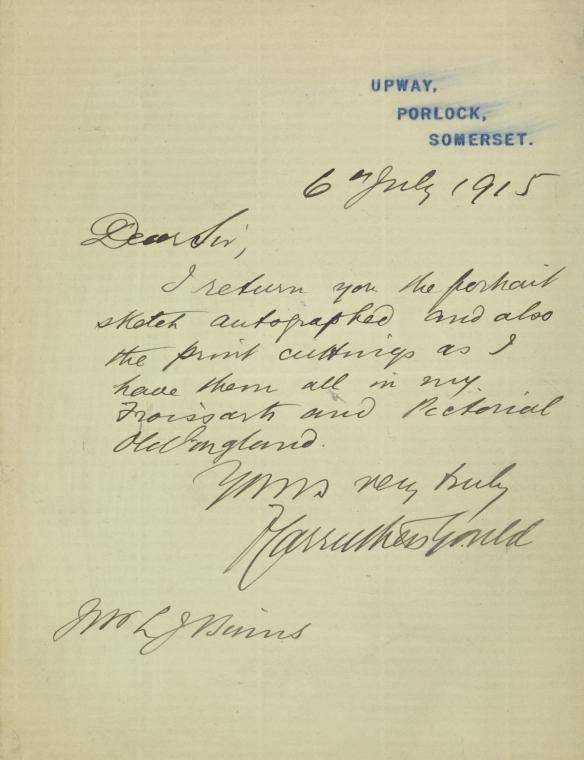 UPWAY,
PORLOCK,
SOMERSET.
6th July 1915
Dear Sir,
I return you the portrait
sketch autographed and also
the print cuttings as I
have them all in my
Froissarts and Pictorial
Old England.
Yours very truly
F Carruthers Gould
L J Binns